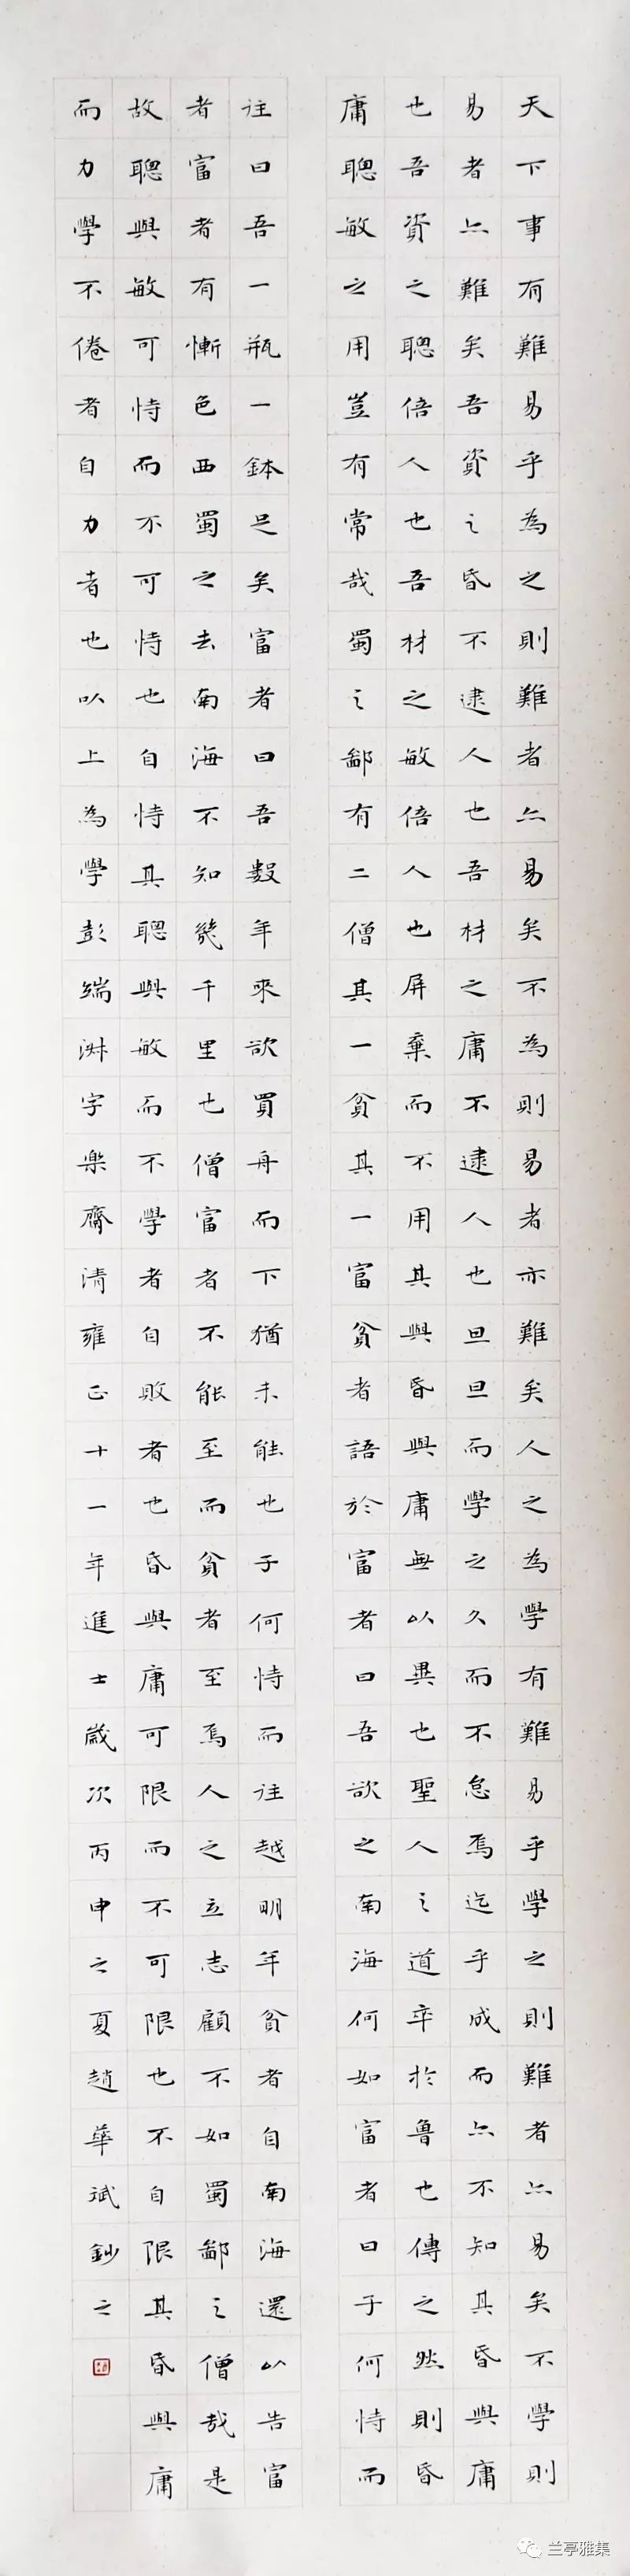 天下事有難易乎為之則難者亦易矣不為則易者亦難矣人之為學有難易乎學之則難者亦易矣不學則
易者亦難矣吾資之昏不逮人也吾材之庸不逮人也旦旦而學之久而不怠焉迄乎成而亦不知其昏與庸
也吾資之聰倍人也吾材之敏倍人也屏棄而不用其與昏與庸無以異也聖人之道卒於魯也傳之然則昏
庸聰敏之用豈有常哉蜀之鄙有二僧其一貧其一富貧者語於富者曰吾欲之南海何如富者曰子何恃而
往曰吾一瓶一鉢足矣富者曰吾數年來欲買舟而下猶未能也子何恃而往越明年貧者自南海還以告富
者富者有慚色西蜀之去南海不知幾千里也僧富者不能至而貧者至焉人之立志顧不如蜀鄙之僧哉是
故聰與敏可恃而不可恃也自恃其聰與敏而不學者自敗者也昏與庸可限而不可限也不自限其昏與庸
而力學不倦者自力者也以上為學彭端淑字樂齋清雍正十一年進士歲次丙申之夏趙華斌鈔之
兰亭雅集